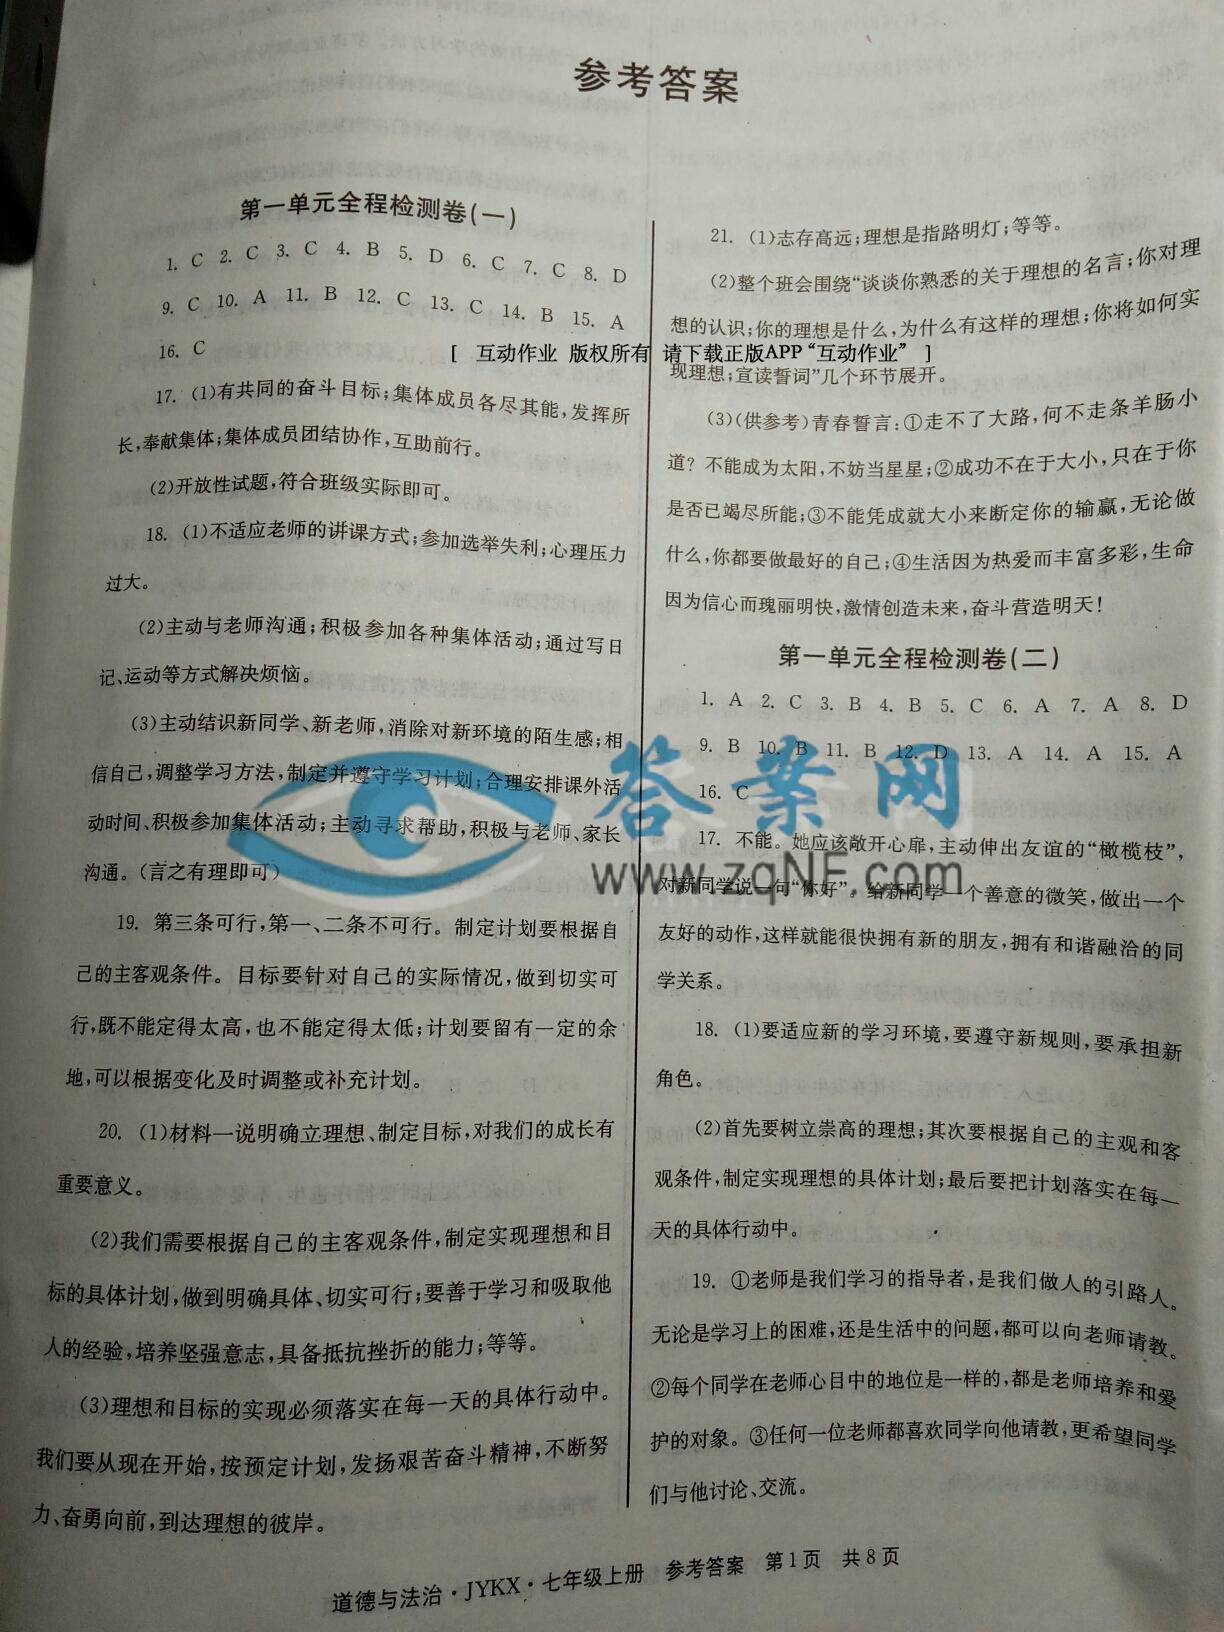 参考答案
第一单元全程检测卷(一)
1. C 2. C 3. C 4. B 5. D 6. C 7. C 8. D
9. C 10. A 11. B 12. C 13. C 14. B 15. A
16. C
17. (1)有共同的奋斗目标;集体成员各尽其能,发挥所
长,奉献集体;集体成员团结协作,互助前行。
(2)开放性试题,符合班级实际即可。
18. (1)不适应老师的讲课方式;参加选举失利;心理压力
过大。
(2)主动与老师沟通;积极参加各种集体活动;通过写日
记、运动等方式解决烦恼。
(3)主动结识新同学、新老师,消除对新环境的陌生感;相
信自己,调整学习方法,制定并遵守学习计划;合理安排课外活
动时间、积极参加集体活动;主动寻求帮助,积极与老师、家长
沟通。(言之有理即可)
19. 第三条可行,第一、二条不可行。制定计划要根据自
己的主客观条件。目标要针对自己的实际情况,做到切实可
行,既不能定得太高,也不能定得太低;计划要留有一定的余
地,可以根据变化及时调整或补充计划。
20. (1)材料一说明确立理想、制定目标,对我们的成长有
重要意义。
(2)我们需要根据自己的主客观条件,制定实现理想和目
标的具体计划,做到明确具体、切实可行;要善于学习和吸取他
人的经验,培养坚强意志,具备抵抗挫折的能力;等等。
(3)理想和目标的实现必须落实在每一天的具体行动中。
我们要从现在开始,按预定计划,发扬艰苦奋斗精神,不断努
力、奋勇向前,到达理想的彼岸。
21. (1)志存高远;理想是指路明灯;等等。
(2)整个班会围绕“谈谈你熟悉的关于理想的名言;你对理
想的认识;你的理想是什么,为什么有这样的理想;你将如何实
[ 互动作业 版权所有 请下载正版APP“互动作业” ]
现理想;宣读誓词”几个环节展开。
(3)(供参考)青春誓言:①走不了大路,何不走条羊肠小
道? 不能成为太阳,不妨当星星;②成功不在于大小,只在于你
是否已竭尽所能;③不能凭成就大小来断定你的输赢,无论做
什么,你都要做最好的自己;④生活因为热爱而丰富多彩,生命
因为信心而瑰丽明快,激情创造未来,奋斗营造明天!
第一单元全程检测卷(二)
1. A 2. C 3. B 4. B 5. C 6. A 7. A 8. D
9. B 10. B 11. B 12. D 13. A 14. A 15. A
16. C
答案网
www.zqNF.com
17. 不能。她应该敞开心扉,主动伸出友谊的“橄榄枝”,
对新同学说一句“你好”。给新同学一个善意的微笑,做出一个
友好的动作,这样就能很快拥有新的朋友,拥有和谐融洽的同
学关系。
18. (1)要适应新的学习环境,要遵守新规则,要承担新
角色。
(2)首先要树立崇高的理想;其次要根据自己的主观和客
观条件,制定实现理想的具体计划;最后要把计划落实在每一
天的具体行动中。
19. ①老师是我们学习的指导者,是我们做人的引路人。
无论是学习上的困难,还是生活中的问题,都可以向老师请教。
②每个同学在老师心目中的地位是一样的,都是老师培养和爱
护的对象。③任何一位老师都喜欢同学向他请教,更希望同学
们与他讨论、交流。
道德与法治·JYKX·七年级上册 参考答案 第1页 共8页